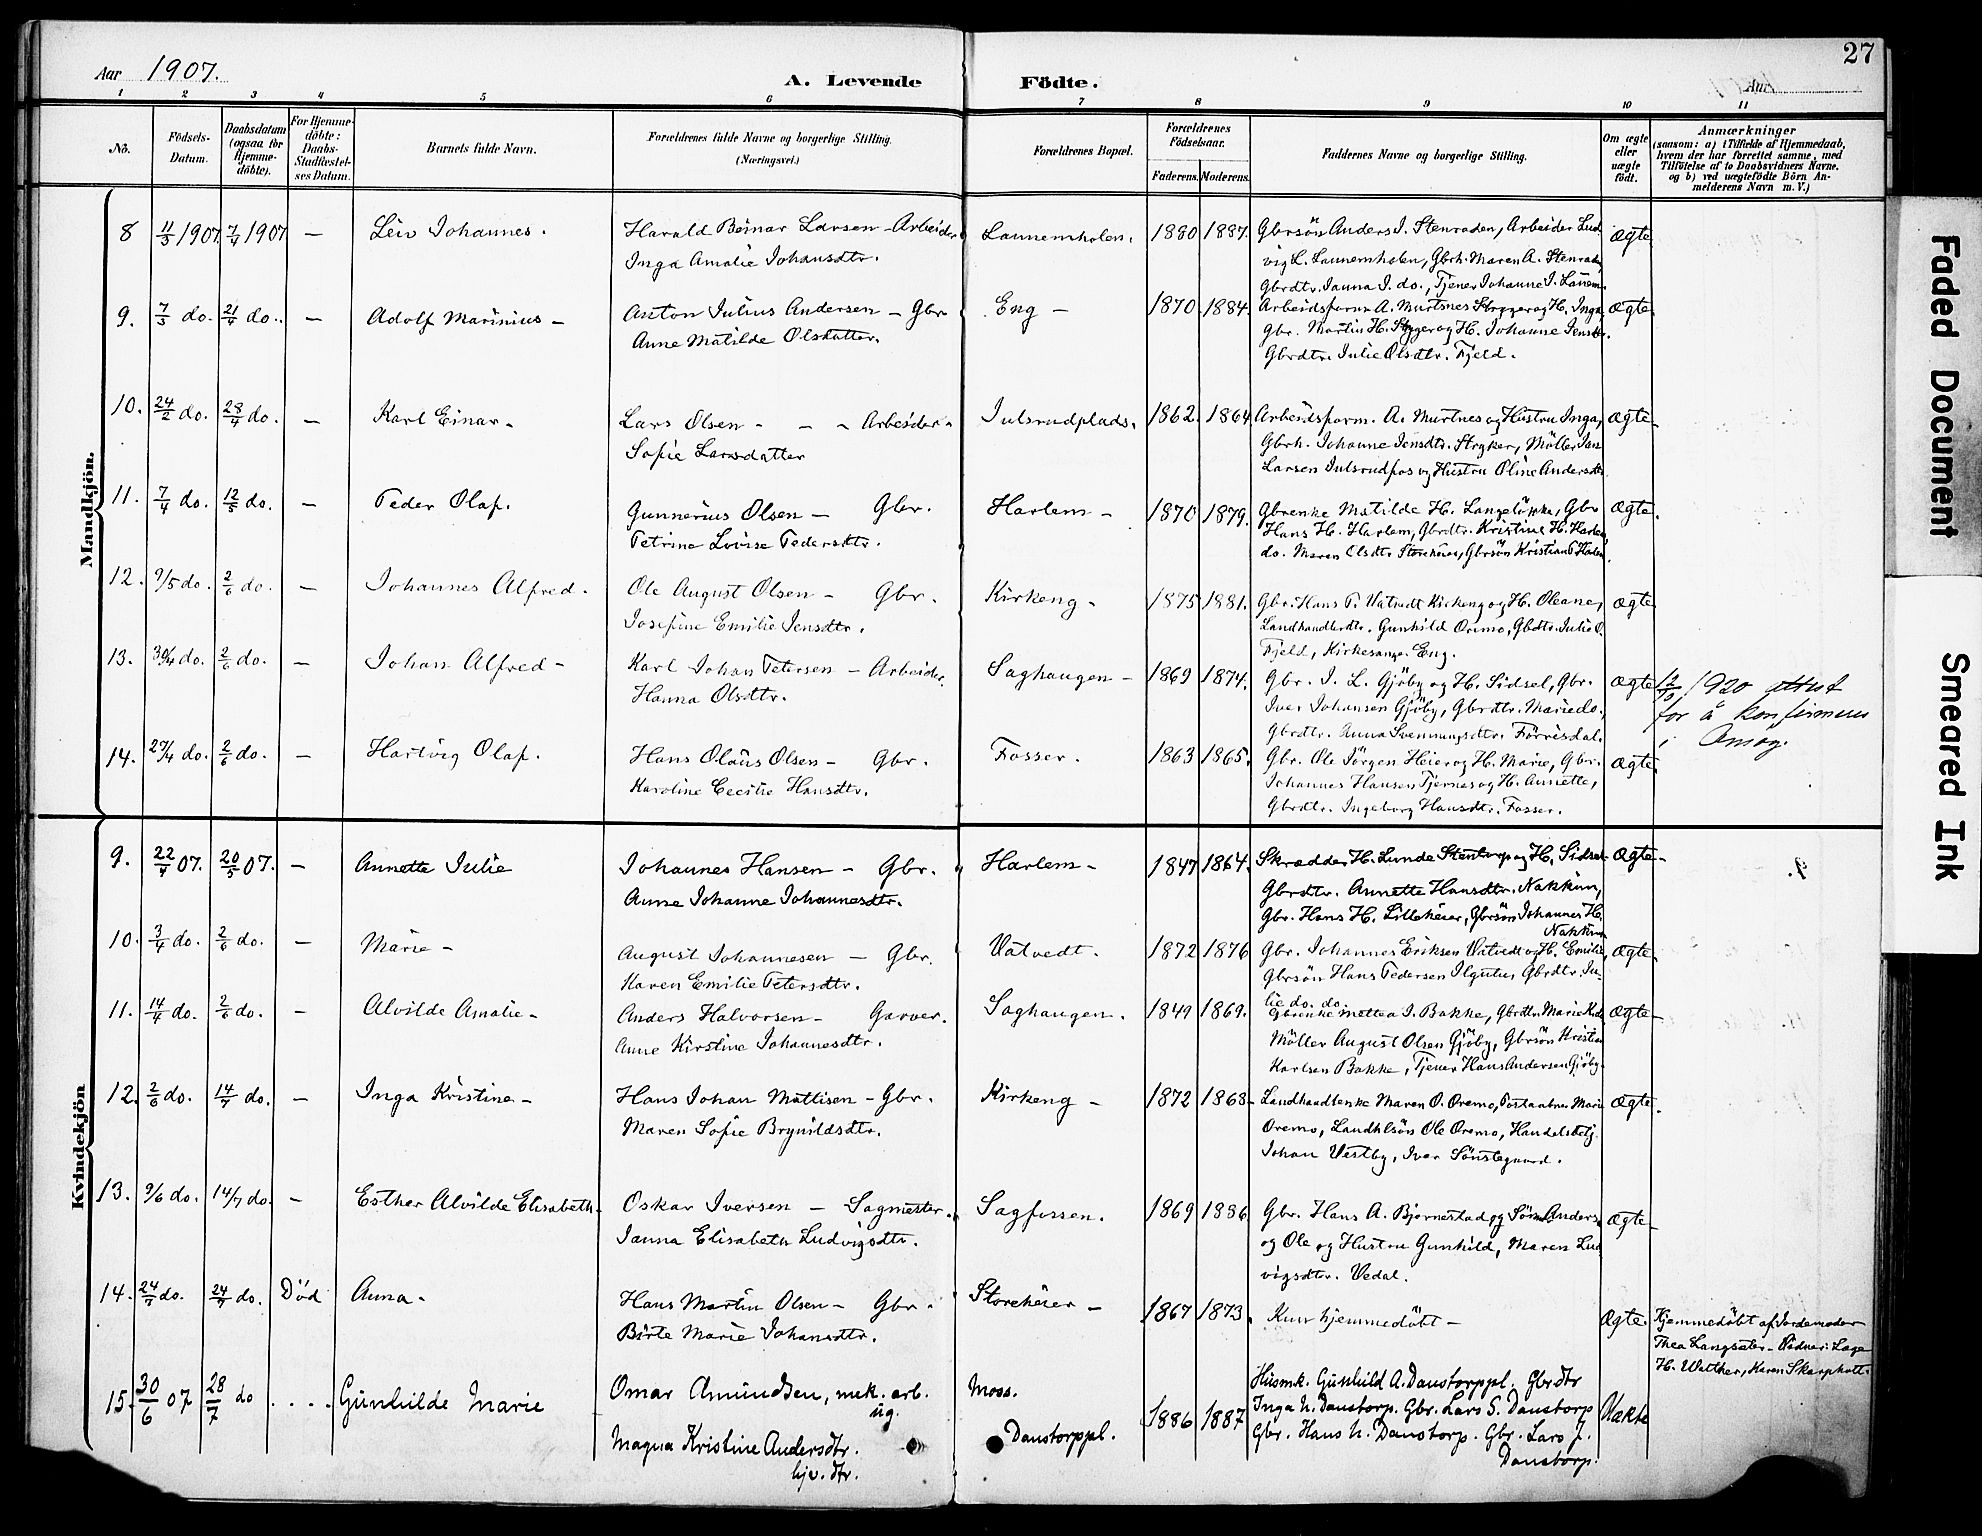 27
Aar 1907.
A. Levende Födte.
Aar
1 2 3 4 5 6 7 8 9 10 11
Nô.
Födsels-Datum.
Daabsdatum (ogsaa for Hjemme-döbte).
For Hjemme-döbte: Daabs-Stadfæstel-ses Datum.
Barnets fulde Navn.
Forældrenes fulde Navne og borgerlige Stilling.
(Næringsvei.)
Forældrenes Bopæl.
Forældrenes Födselsaar.
Faderens. Moderens.
Faddernes Navne og borgerlige Stilling.
Om ægte eller uægte födt.
Anmærkninger
(saasom: a) i Tilfælde af Hjemmedaab,
hvem der har forrettet samme, med
Tilföielse af to Daabsvidners Navne.
og b) ved uægtefödte Börn An-
melderens Navn m. V.)
Mandkjön.
8 11/3 1907. 7/4 1907 — Leiv Johannes. Harald Beinar Larsen - Arbeider Launemholen. 1880 1887. Gbrsön Anders J. Stenraden, Arbeider Lud- ægte
Inga Amalie Johansdtr. vig L. Launemholen, Gbrk. Maren A. Stenrad,
Gbrdtr. Janna J. do., Tjener Johanne J. Launem.
9. 7/3 do. 21/4 do. — Adolf Marinius — Anton Julius Andersen — Gbr Eng — 1870. 1884. Arbeidsform. A. Murtsnes Stryger og H. Inga, ægte
Anne Matilde Olsdatter. Gbr. Martin H. Stryger og H. Johanne Jensdtr.
Gbrdtr. Julie Olsdtr. Fjeld.
10. 24/2 do. 28/4 do. — Karl Einar — Lars Olsen - - - Arbeider. Julsrudplads. 1862. 1864. Arbeidsform. A. Murtnes og Hustru Inga, ægte.
Sofie Larsdatter Gbrh. Johanne Jensdtr. Stryker, Möller Jan
Larsen Julsrudfos og Hustru Oline Andersdtr.
11. 7/4 do. 12/5 do. — Peder Olaf. Gunnerius Olsen — Gbr. Harlem — 1870 1879. Gbrenke Matilde H. Langelökke, Gbr ægte.
Petrine Lovise Pedersdtr. Hans H. Harlem, Gbrdtr. Kristine H. Harlem,
do. Maren Olsdtr Storeheier, Gbrsön Kristian Harlem.
12. 9/5 do. 2/6 do. — Johannes Alfred. Ole August Olsen — Gbr. Kirkeng — 1875 1881. Gbr. Hans P. Vatvedt Kirkeng og H. Oleane, ægte.
Josefine Emilie Jensdtr. Landhandlerdtr. Gunhild Oremo, Gbdtr. Julie O.
Fjeld, Kirkesanger Eng.
13. 30/4 do. 2/6 do. — Johan Alfred — Karl Johan Petersen — Arbeider. Saghaugen — 1869 1874. Gbr. J. L. Gjöby og H. Sidsel, Gbr. ægte 12/10 1920 attest
Hanna Olsdtr. Iver Johansen Gjöby, Gbrdtr. Marie do., for å konfirmeres
Gbrdtr. Anna Svenningsdtr. Förrisdal. i Onsøy.
14. 27/4 do. 2/6 do. — Hartvig Olaf. Hans Olaus Olsen — Gbr. Fosser. 1863 1865. Gbr. Ole Jörgen Heier og H. Marie, Gbr. ægte.
Karoline Cecilie Hansdtr. Johannes Hansen Tjernes og H. Annette,
Gbrdtr. Ingeborg Hansdtr. Fosser.
Kvindekjön
9. 22/4 07. 20/5 07. — Annette Julie Johannes Hansen — Gbr. Harlem — 1847 1864. Skrædder H. Lunde Stentorp og H. Sidsel ægte —
Anne Johanne Johannesdtr. Gbrdtr. Annette Hansdtr. Nakkim,
Gbr. Hans H. Lilleheier, Gbrsön Johannes H.
Nakkim
10. 3/4 do. 2/6 do. — Marie — August Johannesen — Gbr. Vatvedt. 1872 1876 Gbr. Johannes Eriksen Vatvedt og H. Emilie, ægte.
Karen Emilie Petersdtr. Gbrsön Hans Pedersen Ilgutu, Gbrdtr. Ju-
lie do. do.
11. 14/4 do. 2/6 do. — Alvilde Amalie — Anders Halvorsen — Garver. Saghaugen. 1849 1869. Gbrenke Mattea J. Bakke, Gbrdtr. Marie K. do. ægte —
Anne Kirstine Johannesdtr. Möller August Olsen Gjöby, Gbrsön Kristian
Karlsen Bakke, Tjener Hans Andersen Gjöby.
12. 2/6 do. 14/7 do. — Inga Kristine — Hans Johan Mattisen — Gbr. Kirkeng — 1872 1863 Landhandlenke Maren O. Oremo, Postaabner Marie ægte.
Maren Sofie Brynildsdtr. Oremo, Landhlsön Ole Oremo, Handelsbetj.
Johan Vestby, Iver Sönstegaard.
13. 9/6 do. 14/7 do. — Esther Alvilde Elisabeth. Oskar Iversen — Sagmester. Sagfossen. 1869 1886. Gbr. Hans A. Bjørnestad og Søn Anders ægte —
Janna Elisabeth Ludvigsdtr. og Ole og Hustru Gunhild, Maren Lud-
vigsdtr. Vedal.
14. 24/7 do. 24/7 do. Död Anna — Hans Martin Olsen — Gbr. Storeheier — 1867 1873. Kun hjemmedöbt — ægte. Hjemmedöbt af Jordemoder
Birte Marie Johansdtr. Thea Langsæter — Vidner: Lage
H. Watther, Karen Skarpholt.
15. 30/6 07 28/7 do .... Gunhilde Marie Omar Amundsen, mek. arb. Moss. 1886 1887 Husmk. Gunhild A. Danstorppl. Gbrdtr Uækte
ug. Inga N. Danstorp. Gbr. Lars S. Danstorp
Magna Kristine Andersdtr. Danstorppl. Gbr. Hans N. Danstorp. Gbr. Lars J.
hjv. dtr. Danstorp.
Faded Document
Smeared Ink